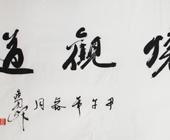 懷觀道
甲午年春月